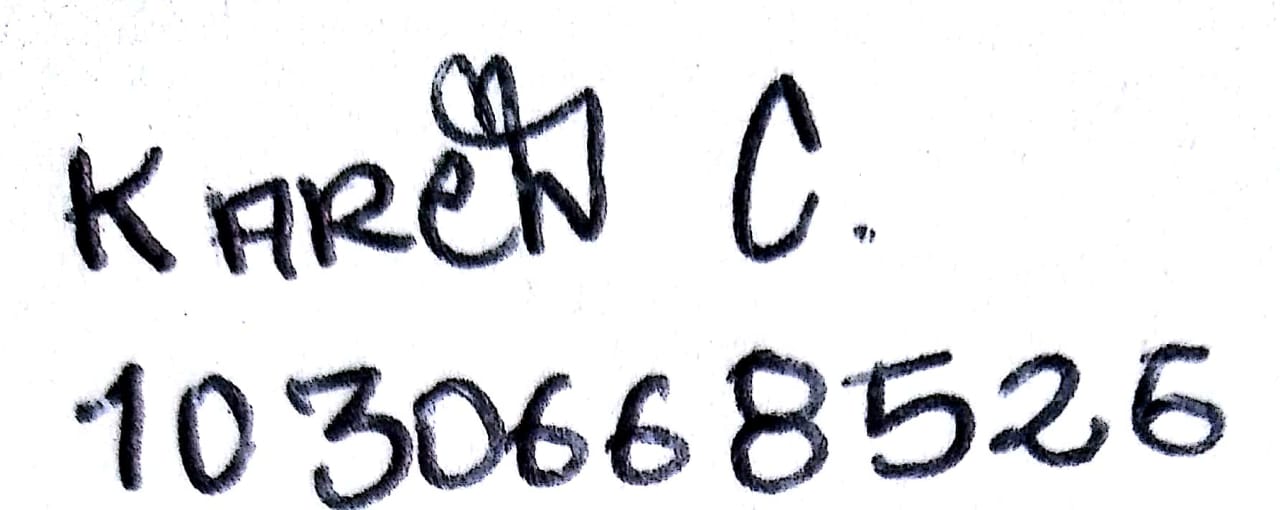 KAReN C.
1030668526